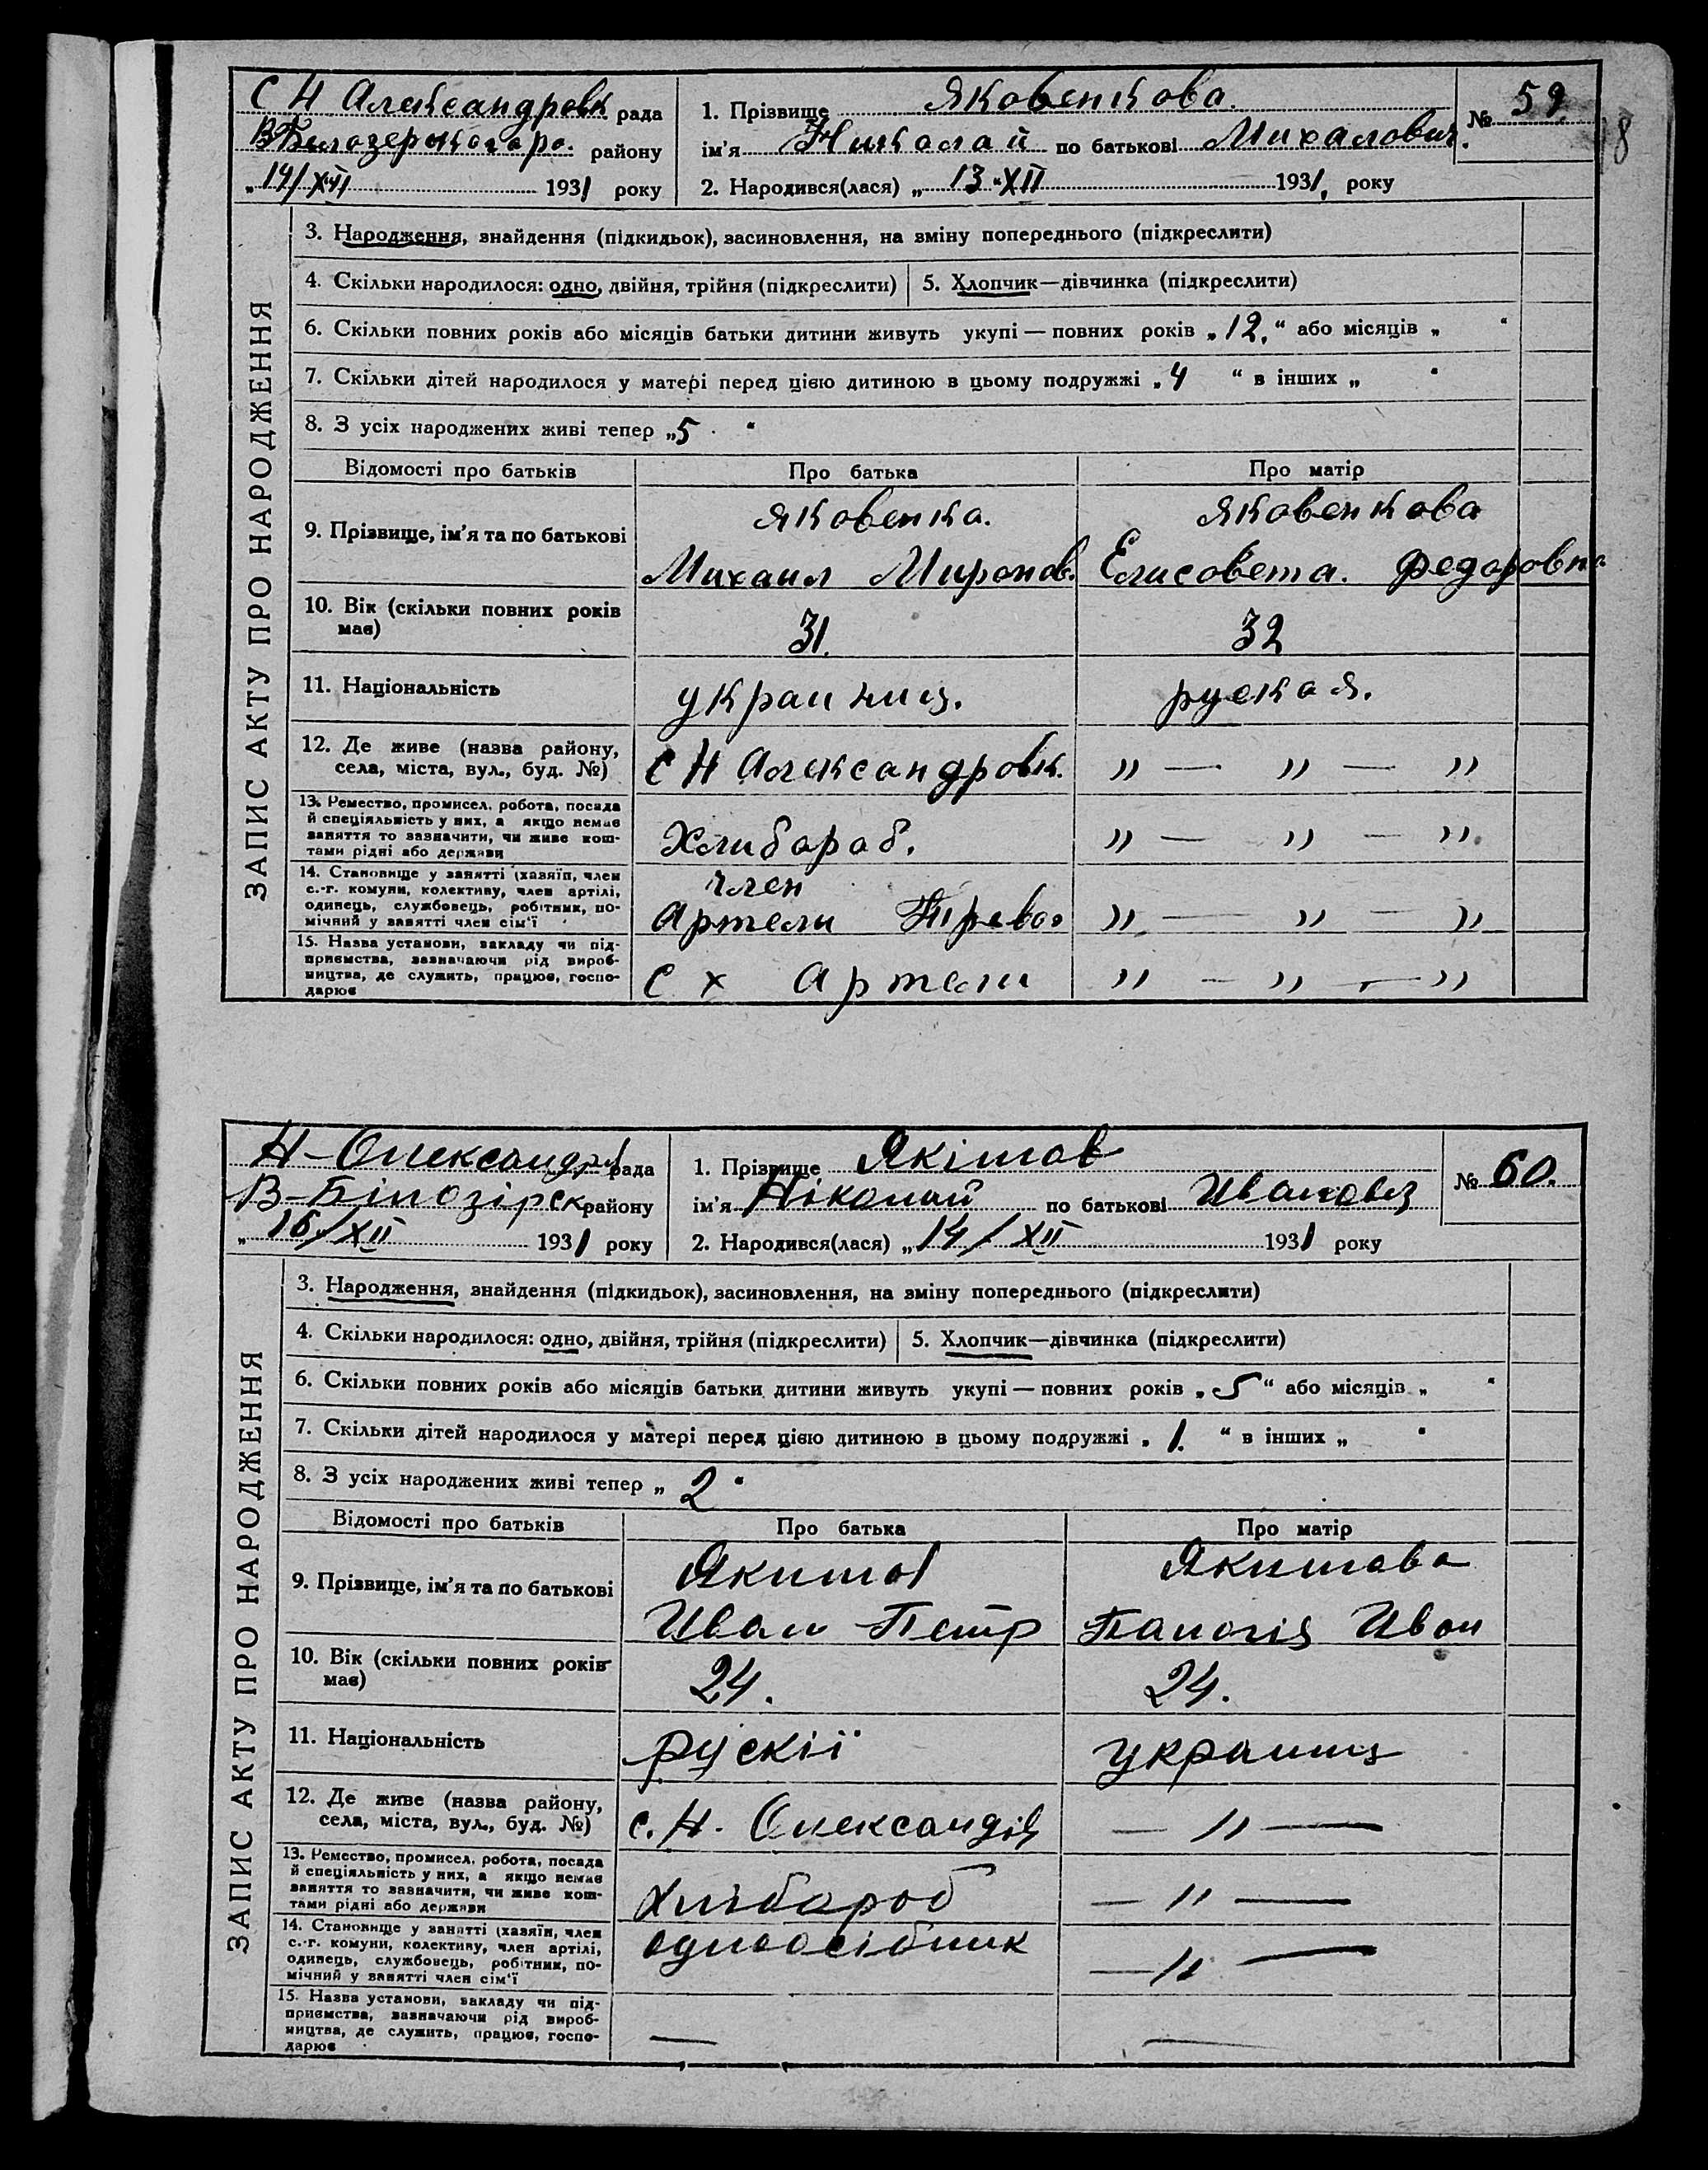 С Н Александровк рада
В Белозерского ро. району
„14/XII 1931 року
1. Прізвище Яковенкова.
ім'я Николай по батькові Михалович.
№ 59
18
2. Народився(лася) „13 "XII 1931, року
ЗАПИС АКТУ ПРО НАРОДЖЕННЯ
3. Народження, знайдення (підкидьок), засиновлення, на зміну попереднього (підкреслити)
4. Скільки народилося: одно, двійня, трійня (підкреслити)
5. Хлопчик—дівчинка (підкреслити)
6. Скільки повних років або місяців батьки дитини живуть укупі — повних років „12." або місяців „ "
7. Скільки дітей народилося у матері перед цією дитиною в цьому подружжі „4 " в інших „ "
8. З усіх народжених живі тепер „5 "
Відомості про батьків Про батька Про матір
9. Прізвище, ім'я та по батькові
Яковенко. Яковенкова
Михаил Миронов. Елисовета. Федоровна
10. Вік (скільки повних років
має)
31. 32
11. Національність украинищ. руская.
12. Де живе (назва району,
села, міста, вул., буд. №)
С Н Александровк. „ — „ — „
13. Ремество, промисел, робота, посада
й спеціяльність у них, а якщо немає
заняття то зазначити, чи живе кош-
тами рідні або держави
Хлибороб. „ — „ — „
14. Становище у занятті (хазяїн, член
с.-г. комуни, колективу, член артілі,
одинець, службовець, робітник, по-
мічний у занятті член сім'ї
член
Артели „ — „ — „
15. Назва установи, закладу чи під-
приємства, зазначаючи рід вироб-
ництва, де служить, працює, госпо-
дарює
С х Артели „ — „ — „
Н-Олександрів рада
В-Білозірск району
„ 16/XII 1931 року
1. Прізвище Якімов
ім'я Ніколай по батькові Иванович
№ 60.
2. Народився(лася) „14/XII 1931 року
ЗАПИС АКТУ ПРО НАРОДЖЕННЯ
3. Народження, знайдення (підкидьок), засиновлення, на зміну попереднього (підкреслити)
4. Скільки народилося: одно, двійня, трійня (підкреслити)
5. Хлопчик—дівчинка (підкреслити)
6. Скільки повних років або місяців батьки дитини живуть укупі — повних років „5" або місяців „ "
7. Скільки дітей народилося у матері перед цією дитиною в цьому подружжі „ 1. " в інших „ "
8. З усіх народжених живі тепер „ 2 "
Відомості про батьків Про батька Про матір
9. Прізвище, ім'я та по батькові
Якимов Якимова
Иван Петр Иван
10. Вік (скільки повних років
має)
24. 24.
11. Національність рускії украинц
12. Де живе (назва району,
села, міста, вул., буд. №)
с. Н. Олександів — „ —
13. Ремество, промисел, робота, посада
й спеціяльність у них, а якщо немає
заняття то зазначити, чи живе кош-
тами рідні або держави
Хлібороб — „ —
14. Становище у занятті (хазяїн, член
с.-г. комуни, колективу, член артілі,
одинець, службовець, робітник, по-
мічний у занятті член сім'ї
одноосібник — „ —
15. Назва установи, закладу чи під-
приємства, зазначаючи рід вироб-
ництва, де служить, працює, госпо-
дарює
— —